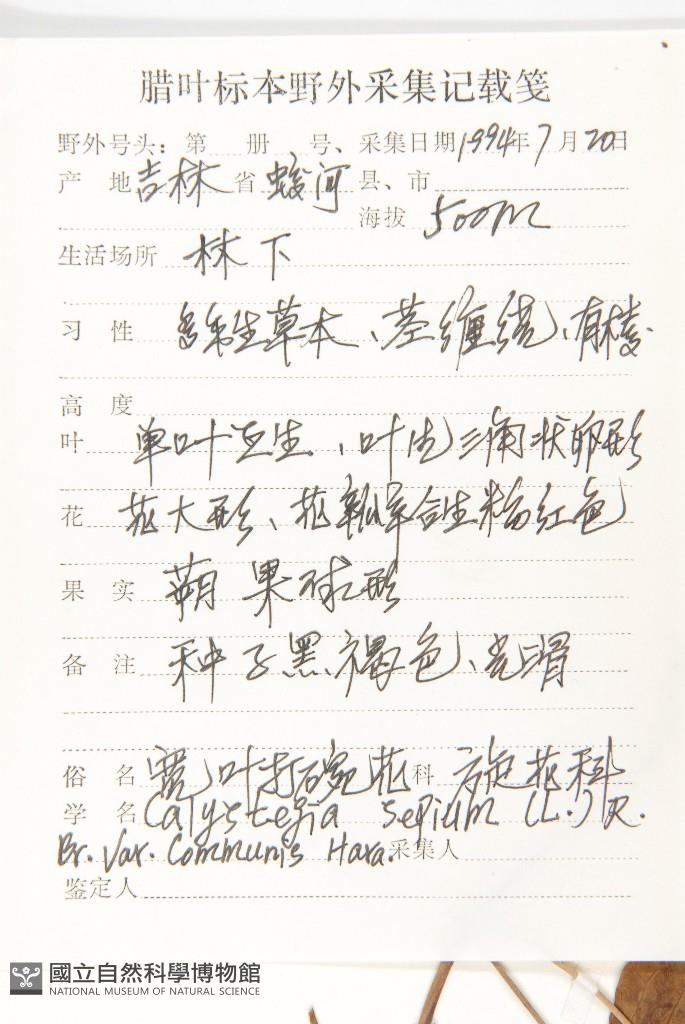 腊叶标本野外采集记载笺
野外号头：第 册 号、采集日期1994年7月20日
产 地 吉林 省 蛟河 县、市
海拔 500m
生活场所 林下
习 性 多年生草本、茎缠绕、有棱.
高 度
叶 单叶互生、叶片三角状卵形
花 花大形、花瓣合生粉红色
果 实 蒴果球形
备 注 种子黑褐色、光滑
俗 名 宽叶打碗花 科 旋花科
学 名 Calystegia Sepium (L.) R.
Br. Var. Communis Hara. 采集人
鉴定人
國立自然科學博物館
NATIONAL MUSEUM OF NATURAL SCIENCE